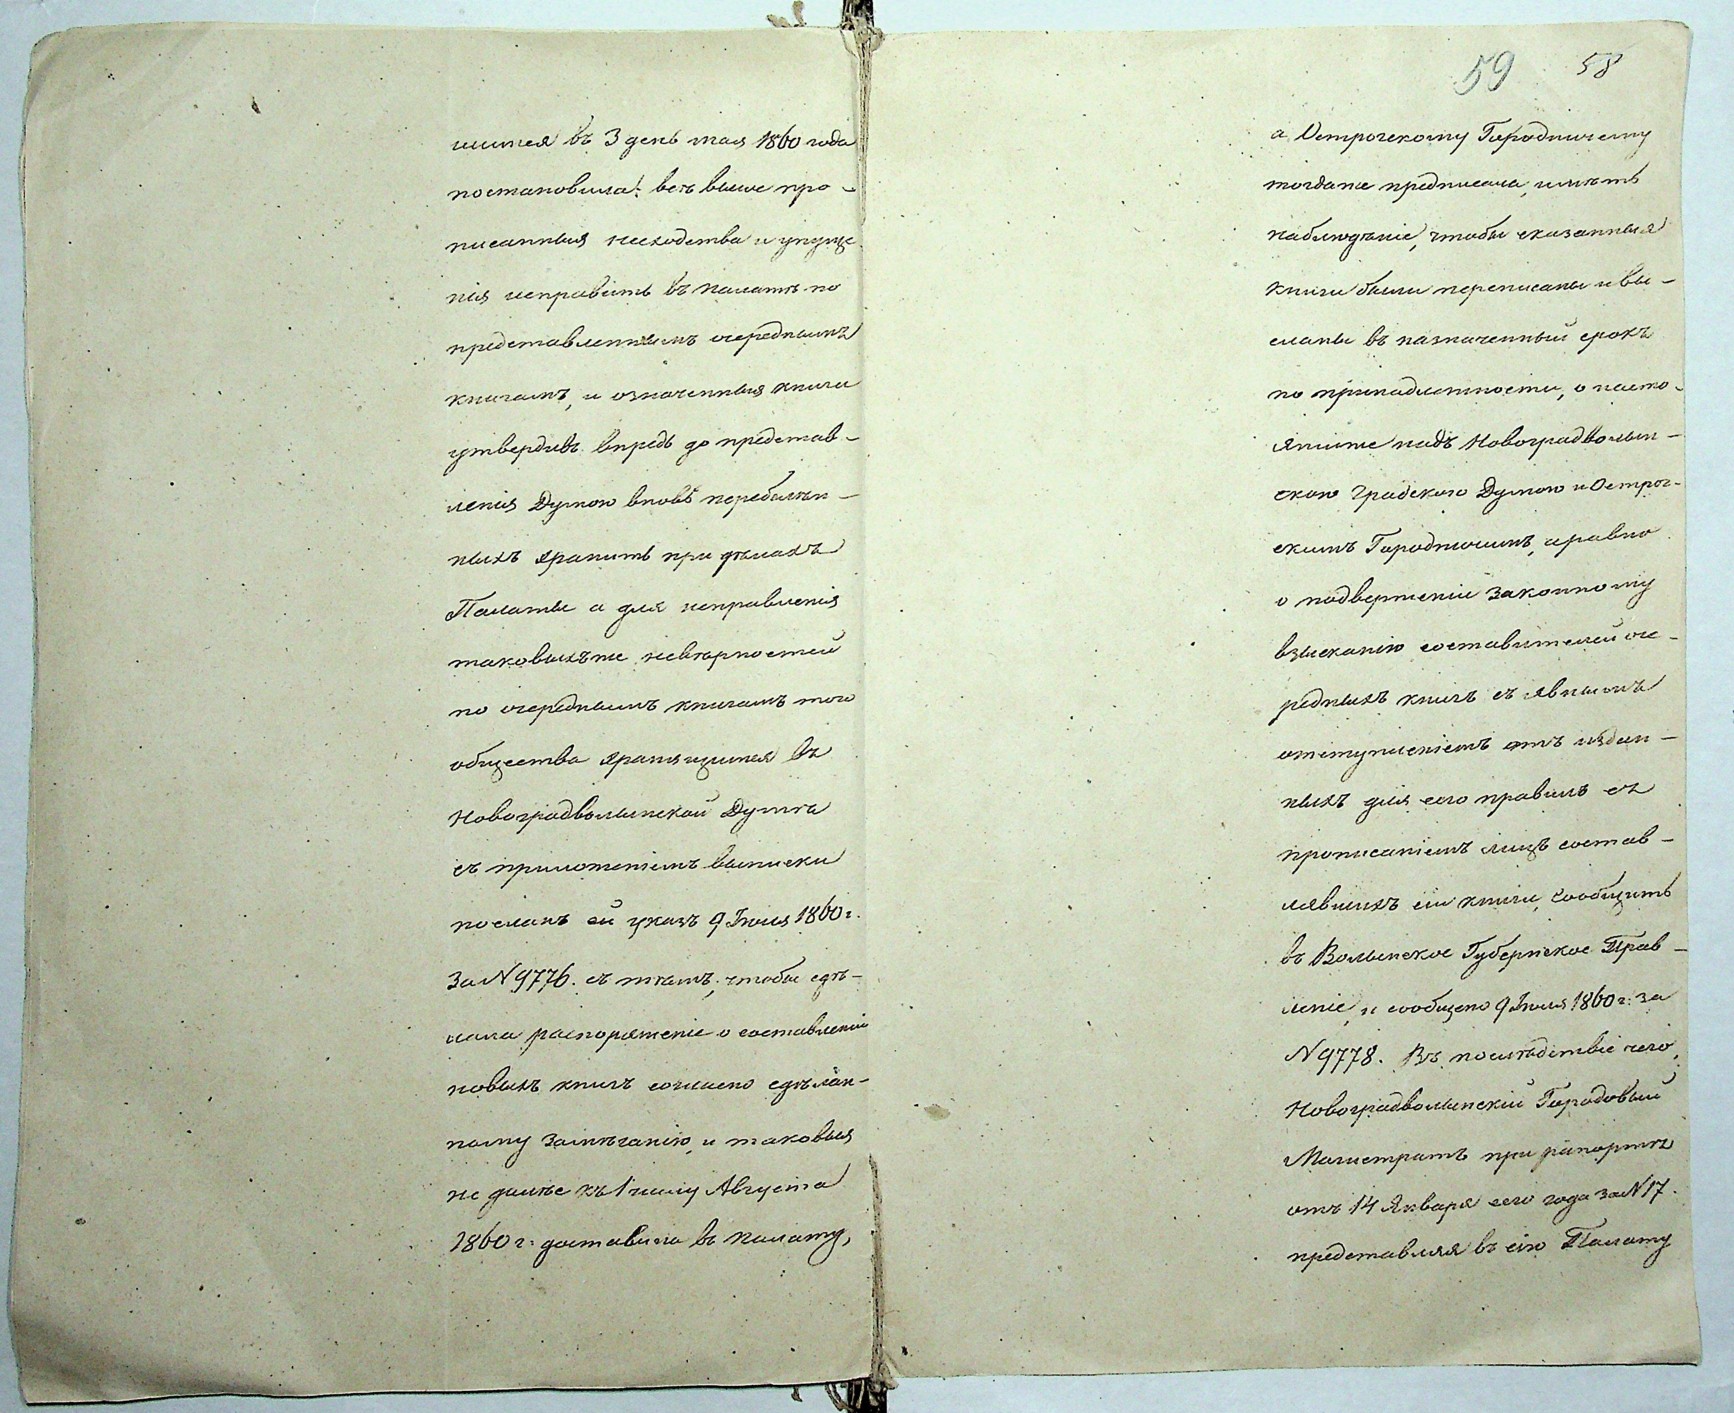 шимся въ 3 день мая 1860 года
постановила: всѣ выше про-
писанныя несходства и упуще
нія исправить въ палатѣ по
представленнымъ очереднымъ
книгамъ, и означенныя книги
утвердивъ впредь до представ-
ленія Думою вновь перебѣлен-
ныхъ хранить при дѣлахъ
Палаты а для исправленія
таковыхъ же невѣрностей
по очереднымъ книгамъ того
общества хранящимся въ
Новоградволынской Думѣ
съ приложеніемъ выписки
посланъ ей указъ 9 Іюля 1860 г.
за N 9776. съ тѣмъ, чтобы сдѣ-
лала распоряженіе о составленіи
новыхъ книгъ согласно сдѣлан-
ному замѣчанію, и таковыя
не далѣе къ 1 числу Августа
1860 г: доставила въ палату,
59 58
а Острогскому Городничему
тогда же предписала, имѣть
наблюдѣніе, чтобы сказанныя
книги были переписаны и вы-
сланы въ назначенный срокъ
по принадлежности, о насто-
яніи же надъ Новоградволын-
скою Градскою Думою и Острог-
скимъ Городничимъ, а равно
о подверженіи законному
взысканію составителей оче-
редныхъ книгъ съ явнымъ
отступленіемъ отъ издан-
ныхъ для сего правилъ съ
прописаніемъ лицъ состав-
лявшихъ сіи книги, сообщить
въ Волынское Губернское Прав-
леніе, и сообщено 9 Іюля 1860 г: за
N 9778. Въ послѣдствіе чего,
Новоградволынскій Городовый
Магистратъ при рапортѣ
отъ 14 Января сего года за N 17.
представляя въ сію Палату